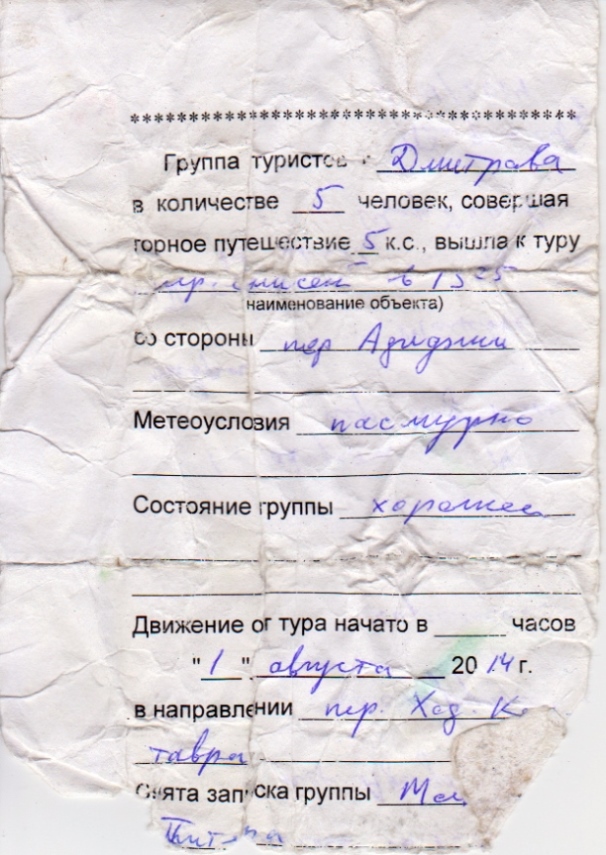 ************************************************
Группа туристов Дмитрава
в количестве 5 человек, совершая
горное путешествие 5 к.с., вышла к туру
в 13 25
наименование объекта)
со стороны пер
Метеоусловия пасмурно
Состояние группы хорошее
Движение от тура начато в ______ часов
"1" августа 2014 г.
в направлении пер. Ход
тавра
Снята записка группы